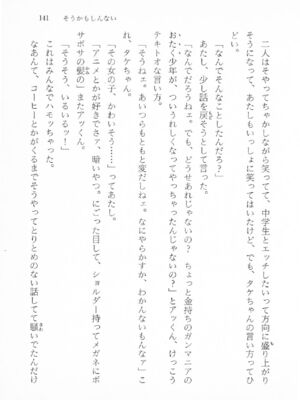 141　そうかもしんない
　二人はそやってちゃかしながら笑ってて、中学生とエッチしたいって方向に盛り上がり
そうになって、あたしもいっしょに笑ってはいたけど、でも、タケちゃんの言い方ってひ
どい。
「なんでそんなことしたんだろ？」
　あたし、少し話を戻そうとして言った。
「なんでだろうねェ。でも、どうせあれじゃないの？　ちょっと金持ちのガンマニアの
おたく少年が、ついうれしくなってやっちゃったんじゃないの？」とアッくん、けっこう
テキトオな言い方。
「そうねェ。あいつらもともと変だしねェ。なにやらかすか、わかんないもんなァ」こ
れ、タケちゃん。
「その女の子、かわいそう……」ってあたし。
「アニメとかが好きでさァ、暗いやつ。にごった目して、ショルダー持ってメガネにボ
サボサの髪の」またアッくん。
「そうそう、いるいるッ！」
　これはみんなでハモッちゃった。
　なあんて、コーヒーとかがくるまでそうやってとりとめのない話してて騒いでたんだけ